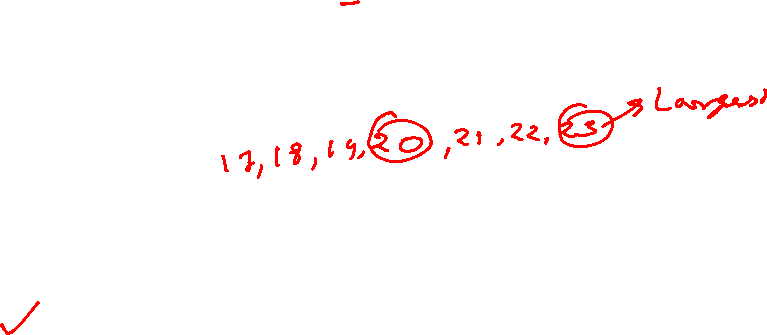 17, 18, 19, 20, 21, 22, 23 → Largest